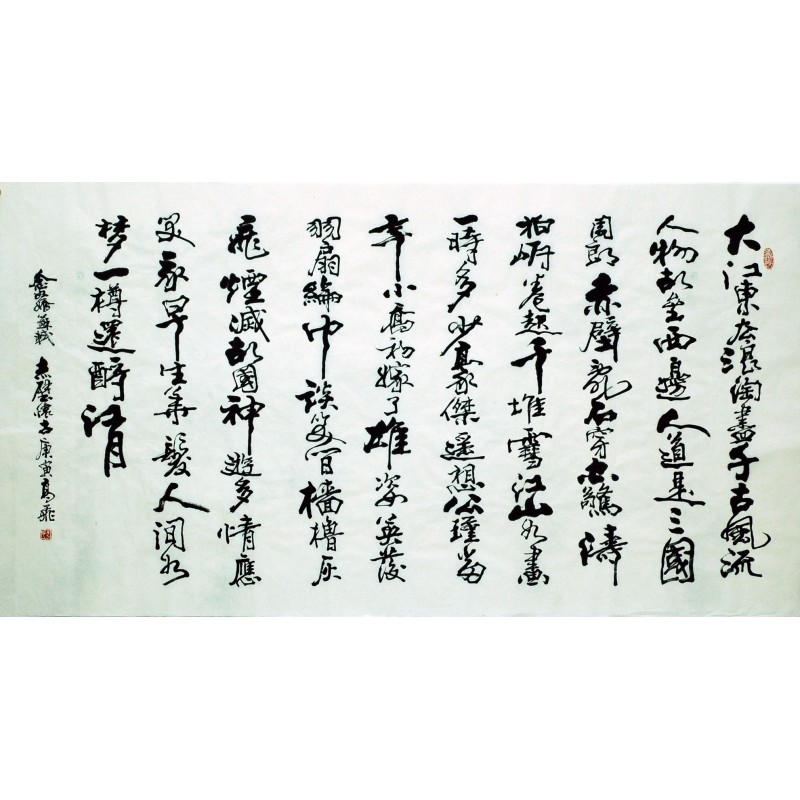 大江東去浪淘盡千古風流
人物故壘西邊人道是三國
周郎赤壁亂石穿空驚濤
拍岍卷起千堆雪江山如畫
一時多少豪傑遥想公瑾當
年小喬初嫁了雄姿英發
羽扇綸巾談笑間檣櫓灰
飛煙滅故國神遊多情應
笑我早生華髮人間如
梦一樽還酹江月
念奴嬌蘇軾 赤壁懷古庚寅高飛